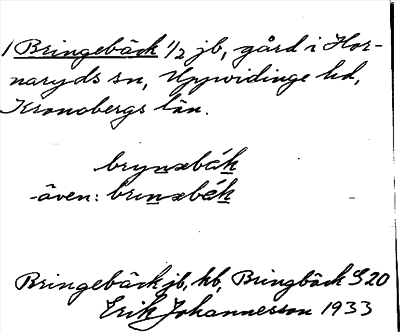 1 Bringebäck 1/2 jb, gård i Hor-
naryds sn, Uppvidinge hd,
Kronobergs län.
brynəbäk
-även: brinəbäk
Bringebäck jb, kb, Bringbäck S 20
Erik Johannesson 1933